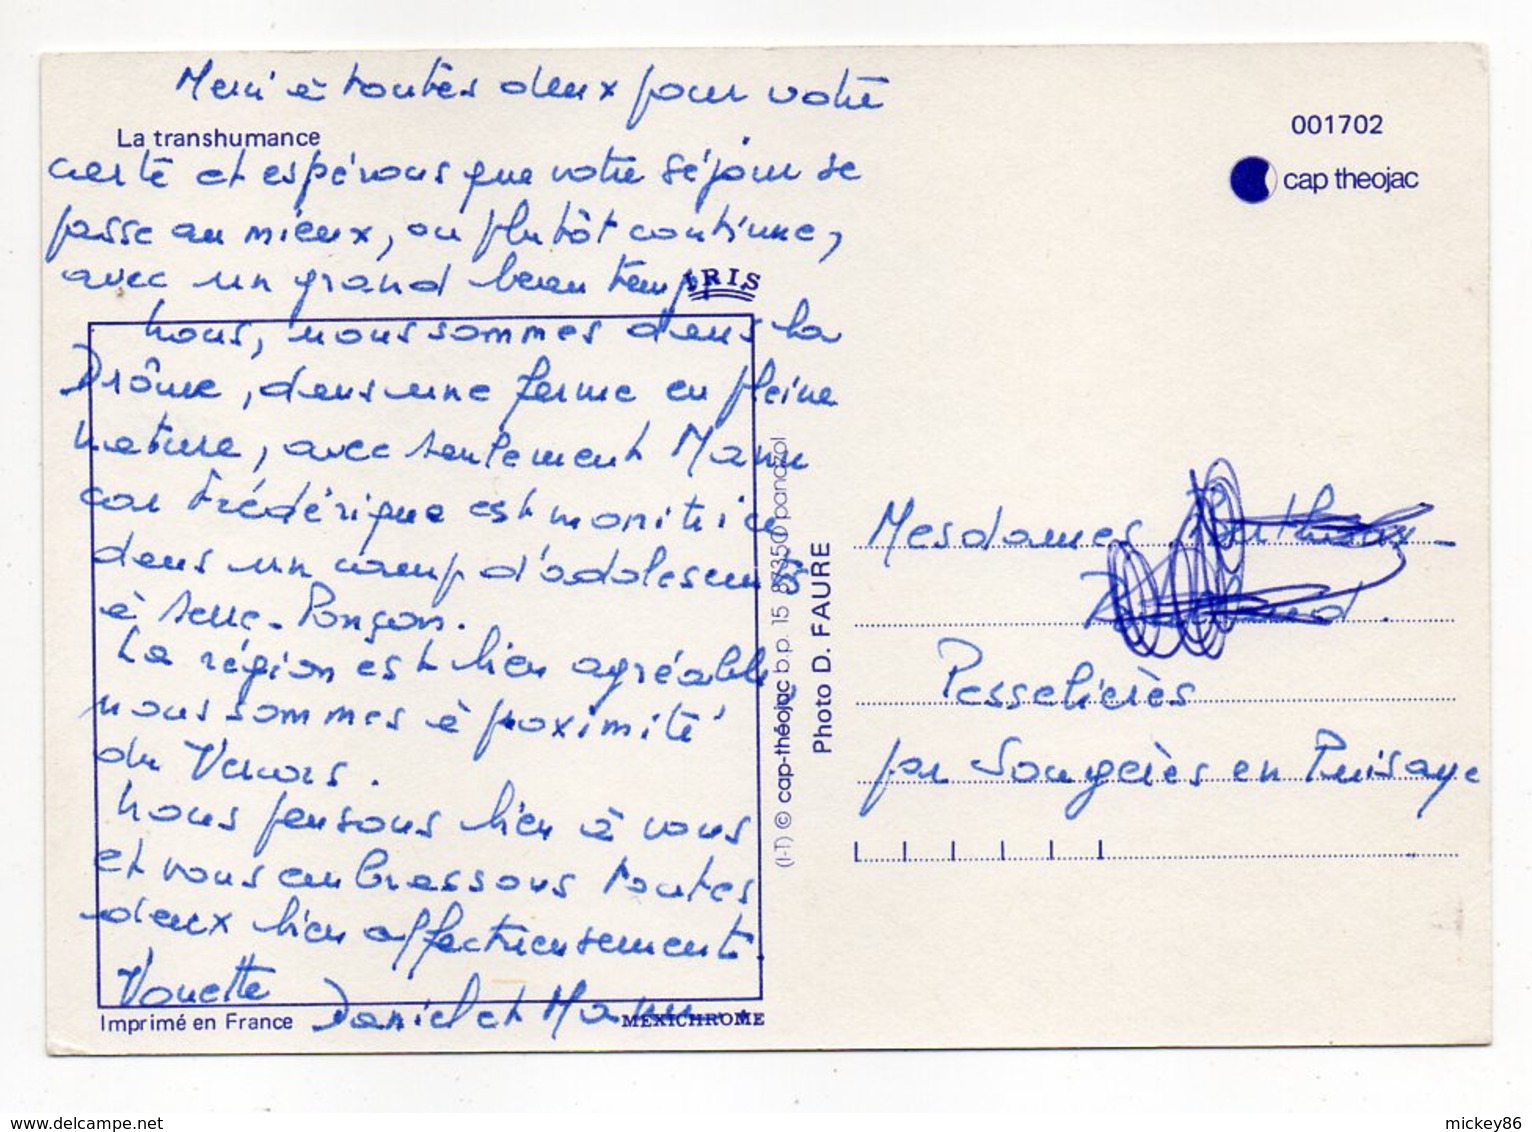 Merci à toutes deux pour votre
La transhumance
carte et espérons que votre séjour se
passe au mieux, ou plutôt continue,
avec un grand beau temps
IRIS
Nous, nous sommes dans la
Drôme, dans une ferme en pleine
nature, avec seulement Manu
car Frédérique est monitrice
dans un camp d'adolescents
à Serre-Ponçon.
La région est bien agréable,
nous sommes à proximité
du Vercors.
Nous pensons bien à vous
et vous embrassons toutes
deux bien affectueusement.
Daniel et Manu
Imprimé en France
MEXICHROME
(I-T) © cap-théojac b.p. 15 87350 panazol
Photo D. FAURE
001702
cap theojac
Mesdames
Pesselières
par Sougères en Puisaye
mickey86
delcampe.net